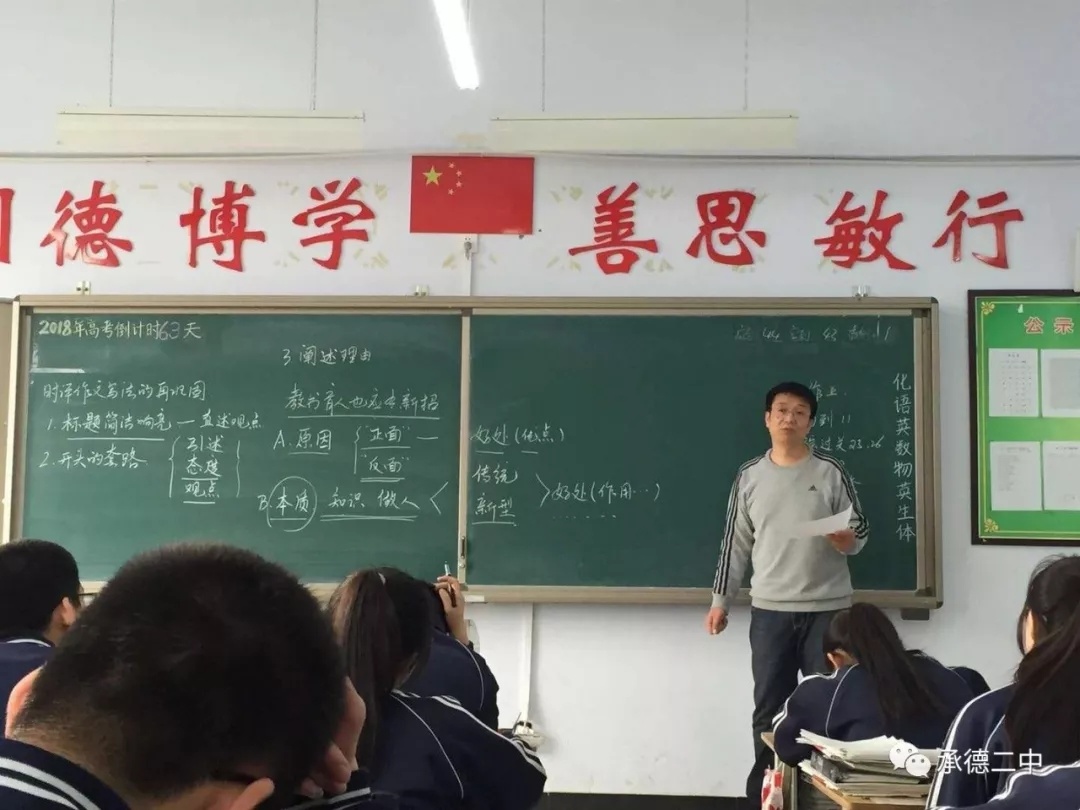 德博学 善思敏行
2018年高考倒计时63天
时评作文写法的再巩固
1.标题简洁响亮—直述观点
2.开头的套路
引述
态度
观点
3 阐述理由
教书育人也应有新招
A.原因
"正面"—
"反面"
好处(优点)
B.本质 知识 做人
传统
新型
好处(作用…)
化语英数物英生体
公示
承德二中